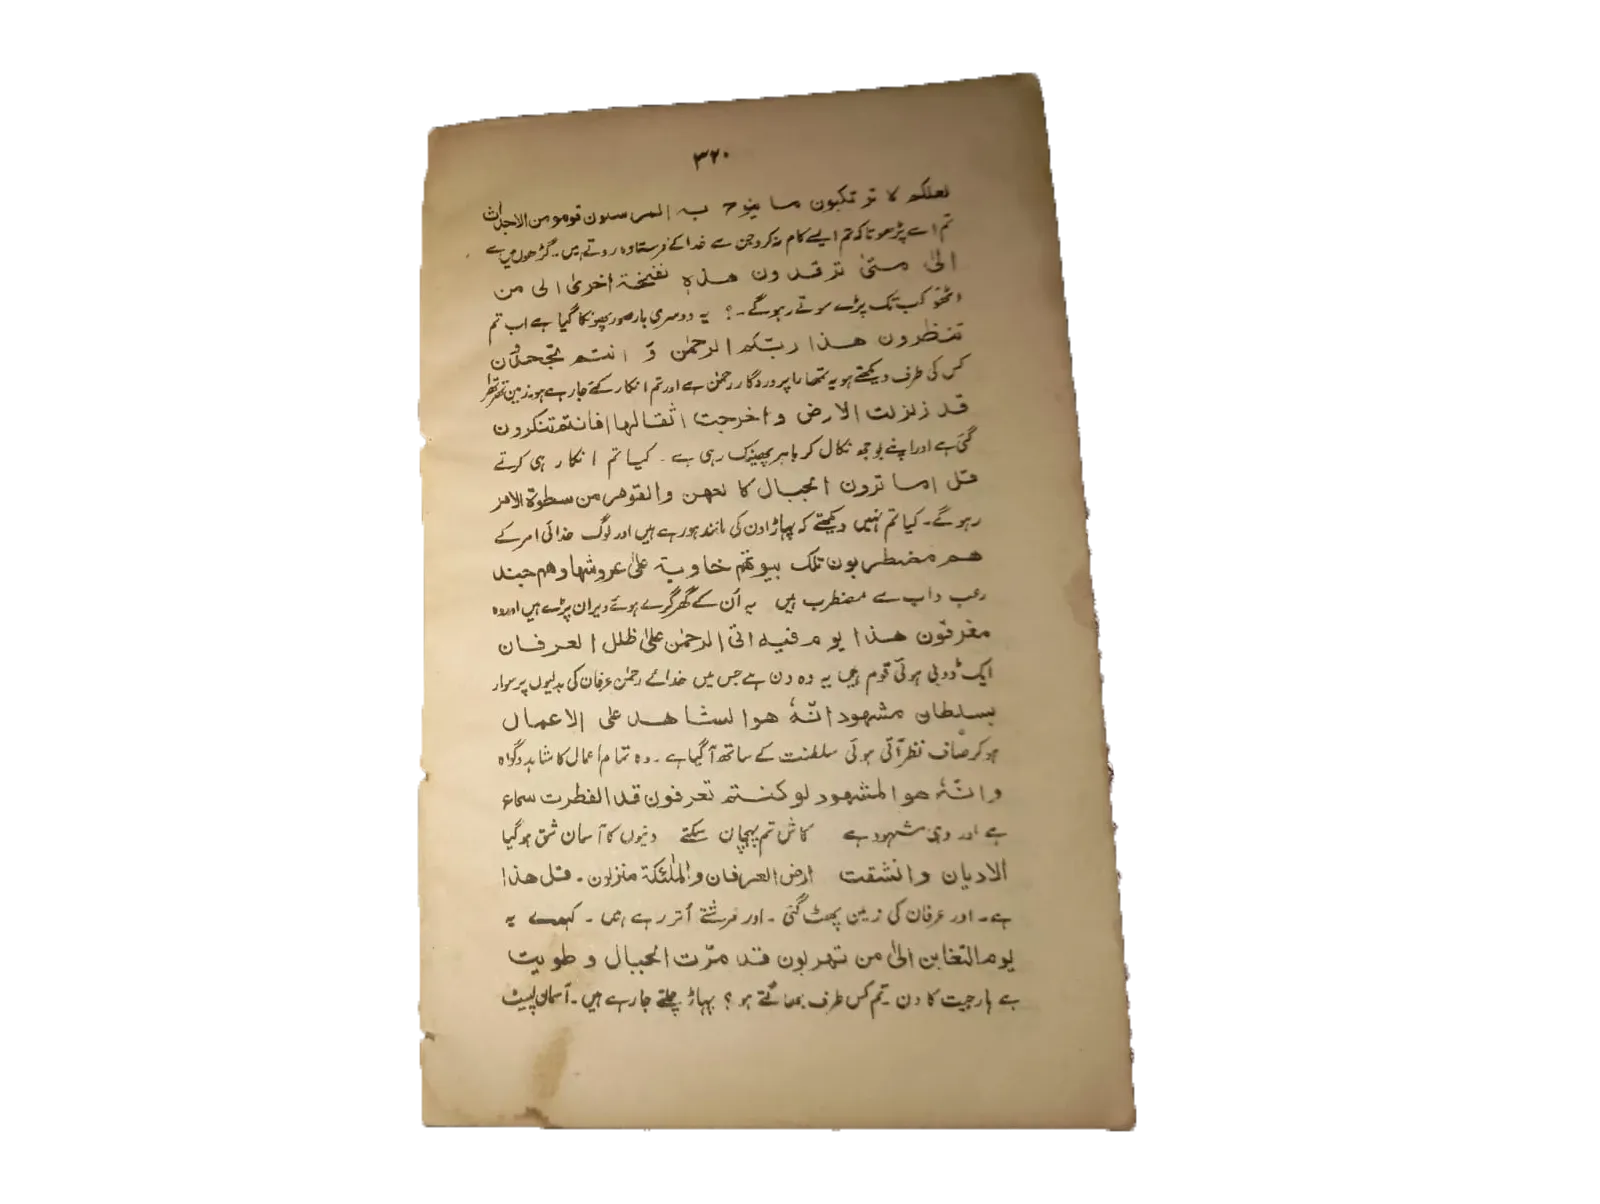 ۳۲۰
لعلکم لا ترتکبون ما ینوح بہ المرسلون قوموا من الاجداث
تم اسے پڑھو تا کہ تم ایسے کام نہ کرو جن سے خدا کے فرستادہ روتے ہیں۔ گڑھوں میں سے
الیٰ متیٰ ترقدون ھذہٖ نفخۃ اخریٰ الی من
اٹھو کب تک پڑے سوتے رہو گے۔؟ یہ دوسری بار صور پھونکا گیا ہے اب تم
تنظرون ھذا ربّکم الرحمٰن وَ انتم تجحدون
کس کی طرف دیکھتے ہو یہ تمھارا پروردگار رحمٰن ہے اور تم انکار کئے جا رہے ہو۔ زمین تھرتھرا
قد زلزلت الارض و اخرجت اثقالھا افانتم تنکرون
گئی ہے اور اپنے بوجھ نکال کر باہر پھینک رہی ہے۔ کیا تم انکار ہی کرتے
قل اما ترون الجبال کالعھن والقوم من سطوۃ الامر
رہو گے۔ کیا تم نہیں دیکھتے کہ پہاڑ اون کی مانند ہو رہے ہیں اور لوگ خدائی امر کے
ھم مضطربون تلک بیوتھم خاویۃ علیٰ عروشھا وھم جند
رعب داب سے مضطرب ہیں یہ اُن کے گھر گرے ہوئے ویران پڑے ہیں اور وہ
مغرقون ھذا یوم فیہ اتی الرحمٰن علیٰ ظلل العرفان
ایک ڈوبی ہوئی قوم ہیں یہ وہ دن ہے جس میں خدائے رحمٰن عرفان کی بدلیوں پر سوار
بسلطان مشھود انّہٗ ھو الشاھد علی الاعمال
ہو کر صاف نظر آتی ہوئی سلطنت کے ساتھ آ گیا ہے۔ وہ تمام اعمال کا شاہد و گواہ
وانّہٗ ھو المشھود لو کنتم تعرفون قد انفطرت سماء
ہے اور وہی مشہود ہے کاش تم پہچان سکتے دینوں کا آسمان شق ہو گیا
الادیان وانشقت ارض العرفان والملٰئکۃ منزلون۔ قل ھذا
ہے۔ اور عرفان کی زمین پھٹ گئی۔ اور فرشتے اُتر رہے ہیں۔ کہدے یہ
یوم التغابن الیٰ من تھربون قد مرّت الجبال و طویت
ہے ہار جیت کا دن۔ تم کس طرف بھاگتے ہو؟ پہاڑ چلتے جا رہے ہیں۔ آسمان لپیٹ